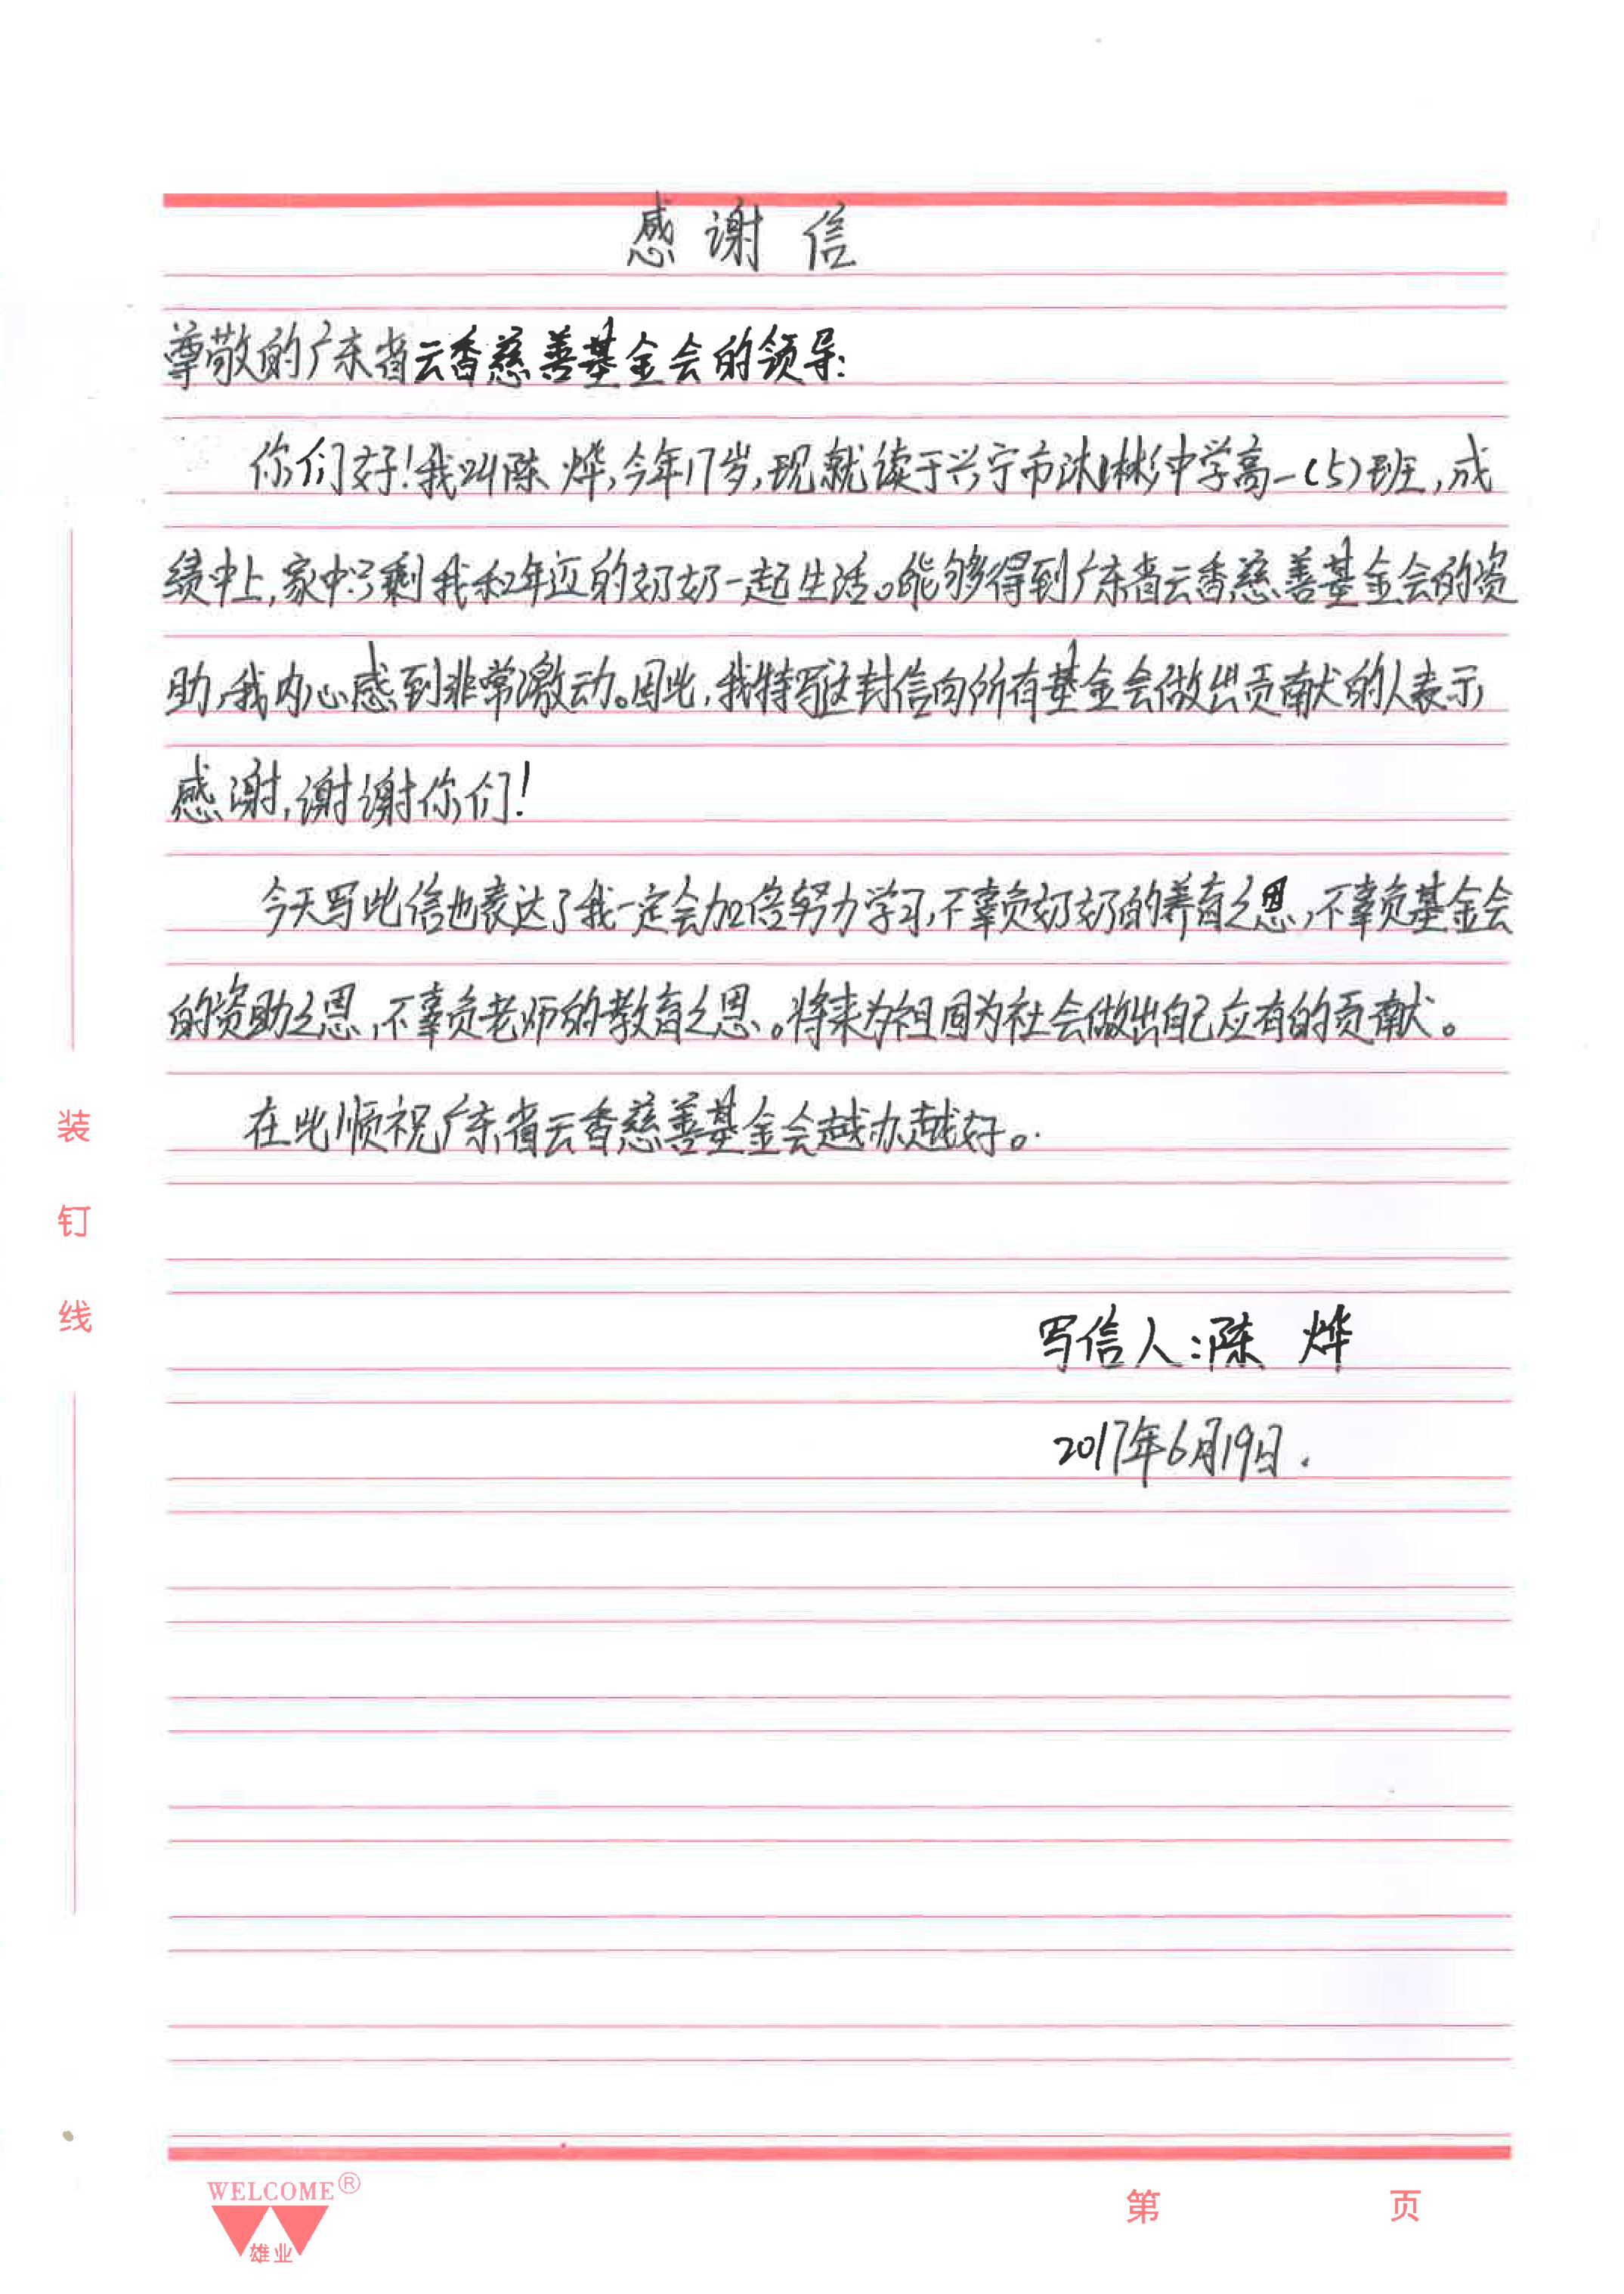 感谢信
尊敬的广东省云香慈善基金会的领导:
你们好!我叫陈烨,今年17岁,现就读于兴宁市沐彬中学高一(5)班,成
绩中上,家中只剩我和年迈的奶奶一起生活。能够得到广东省云香慈善基金会的资
助,我内心感到非常激动。因此,我特写这封信向所有基金会做出贡献的人表示
感谢,谢谢你们!
今天写此信也表达了我一定会加倍努力学习,不辜负奶奶的养育之恩,不辜负基金会
的资助之恩,不辜负老师的教育之恩。将来为祖国为社会做出自己应有的贡献。
在此顺祝广东省云香慈善基金会越办越好。
写信人:陈烨
2017年6月19日.
装
钉
线
WELCOME®
雄业
第 页